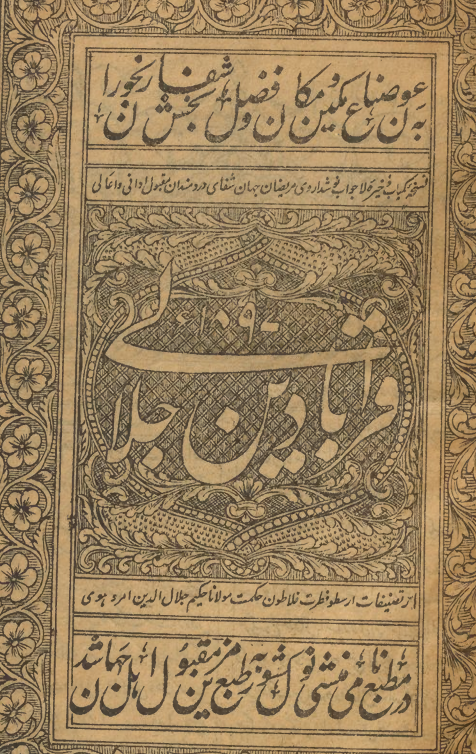 بعون صناع مکین و مکان و فضل شفا بخش رنجوران
نسخه کمیاب ذخیره لاجواب نوشداروی مریضان جهان شفای دردمندان مقبول ادانی و اعالی
قرابادین جلالی
از تصنیفات ارسطو فطرت فلاطون حکمت مولانا حکیم جلال الدین امروهوی
در مطبع نامی منشی نولکشور بطبع مزین مقبول اهل جهان شد